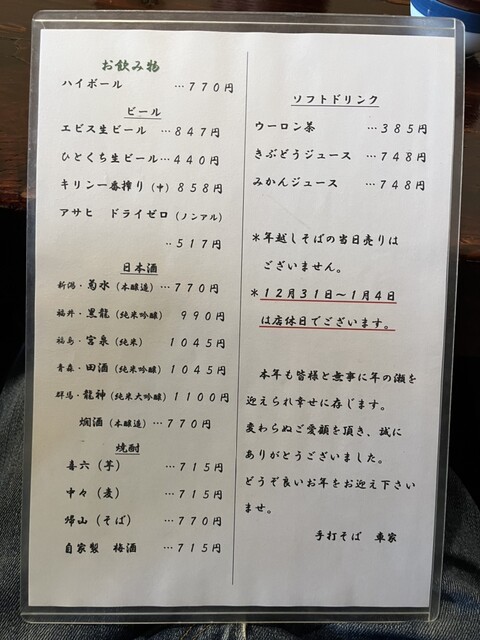 お飲み物
ハイボール …770円
ビール
エビス生ビール …847円
ひとくち生ビール…440円
キリン一番搾り(中)858円
アサヒ ドライゼロ(ノンアル)
…517円
日本酒
新潟・菊水(本醸造)…770円
福井・黒龍(純米吟醸) 990円
福島・宮泉(純米) 1045円
青森・田酒(純米吟醸)1045円
群馬・龍神(純米大吟醸)1100円
燗酒(本醸造)…770円
焼酎
喜六(芋) …715円
中々(麦) …715円
帰山(そば) …770円
自家製 梅酒 …715円
ソフトドリンク
ウーロン茶 …385円
きぶどうジュース …748円
みかんジュース …748円
*年越しそばの当日売りは
ございません。
*12月31日~1月4日
は店休日でございます。
本年も皆様と無事に年の瀬を
迎えられ幸せに存じます。
変わらぬご愛顧を頂き、誠に
ありがとうございました。
どうぞ良いお年をお迎え下さい
ませ。
手打そば 車家